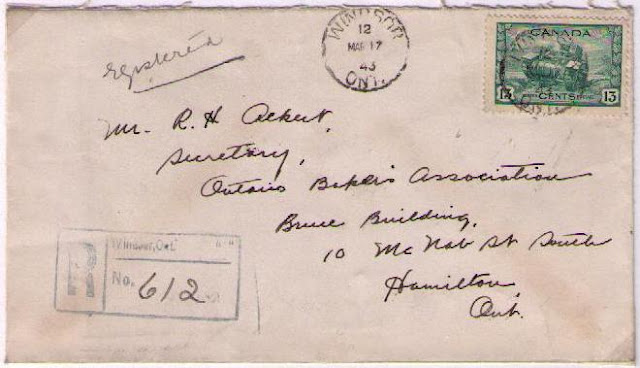 WINDSOR
12
MAR 17
43
ONT.
CANADA
13 CENTS 13
Registered
Mr. R. H. Ackert,
Secretary,
Ontario Bakers Association
Bruce Building,
10 McNab St South
Hamilton,
Ont.
R
Windsor, Ont. "
No. 612